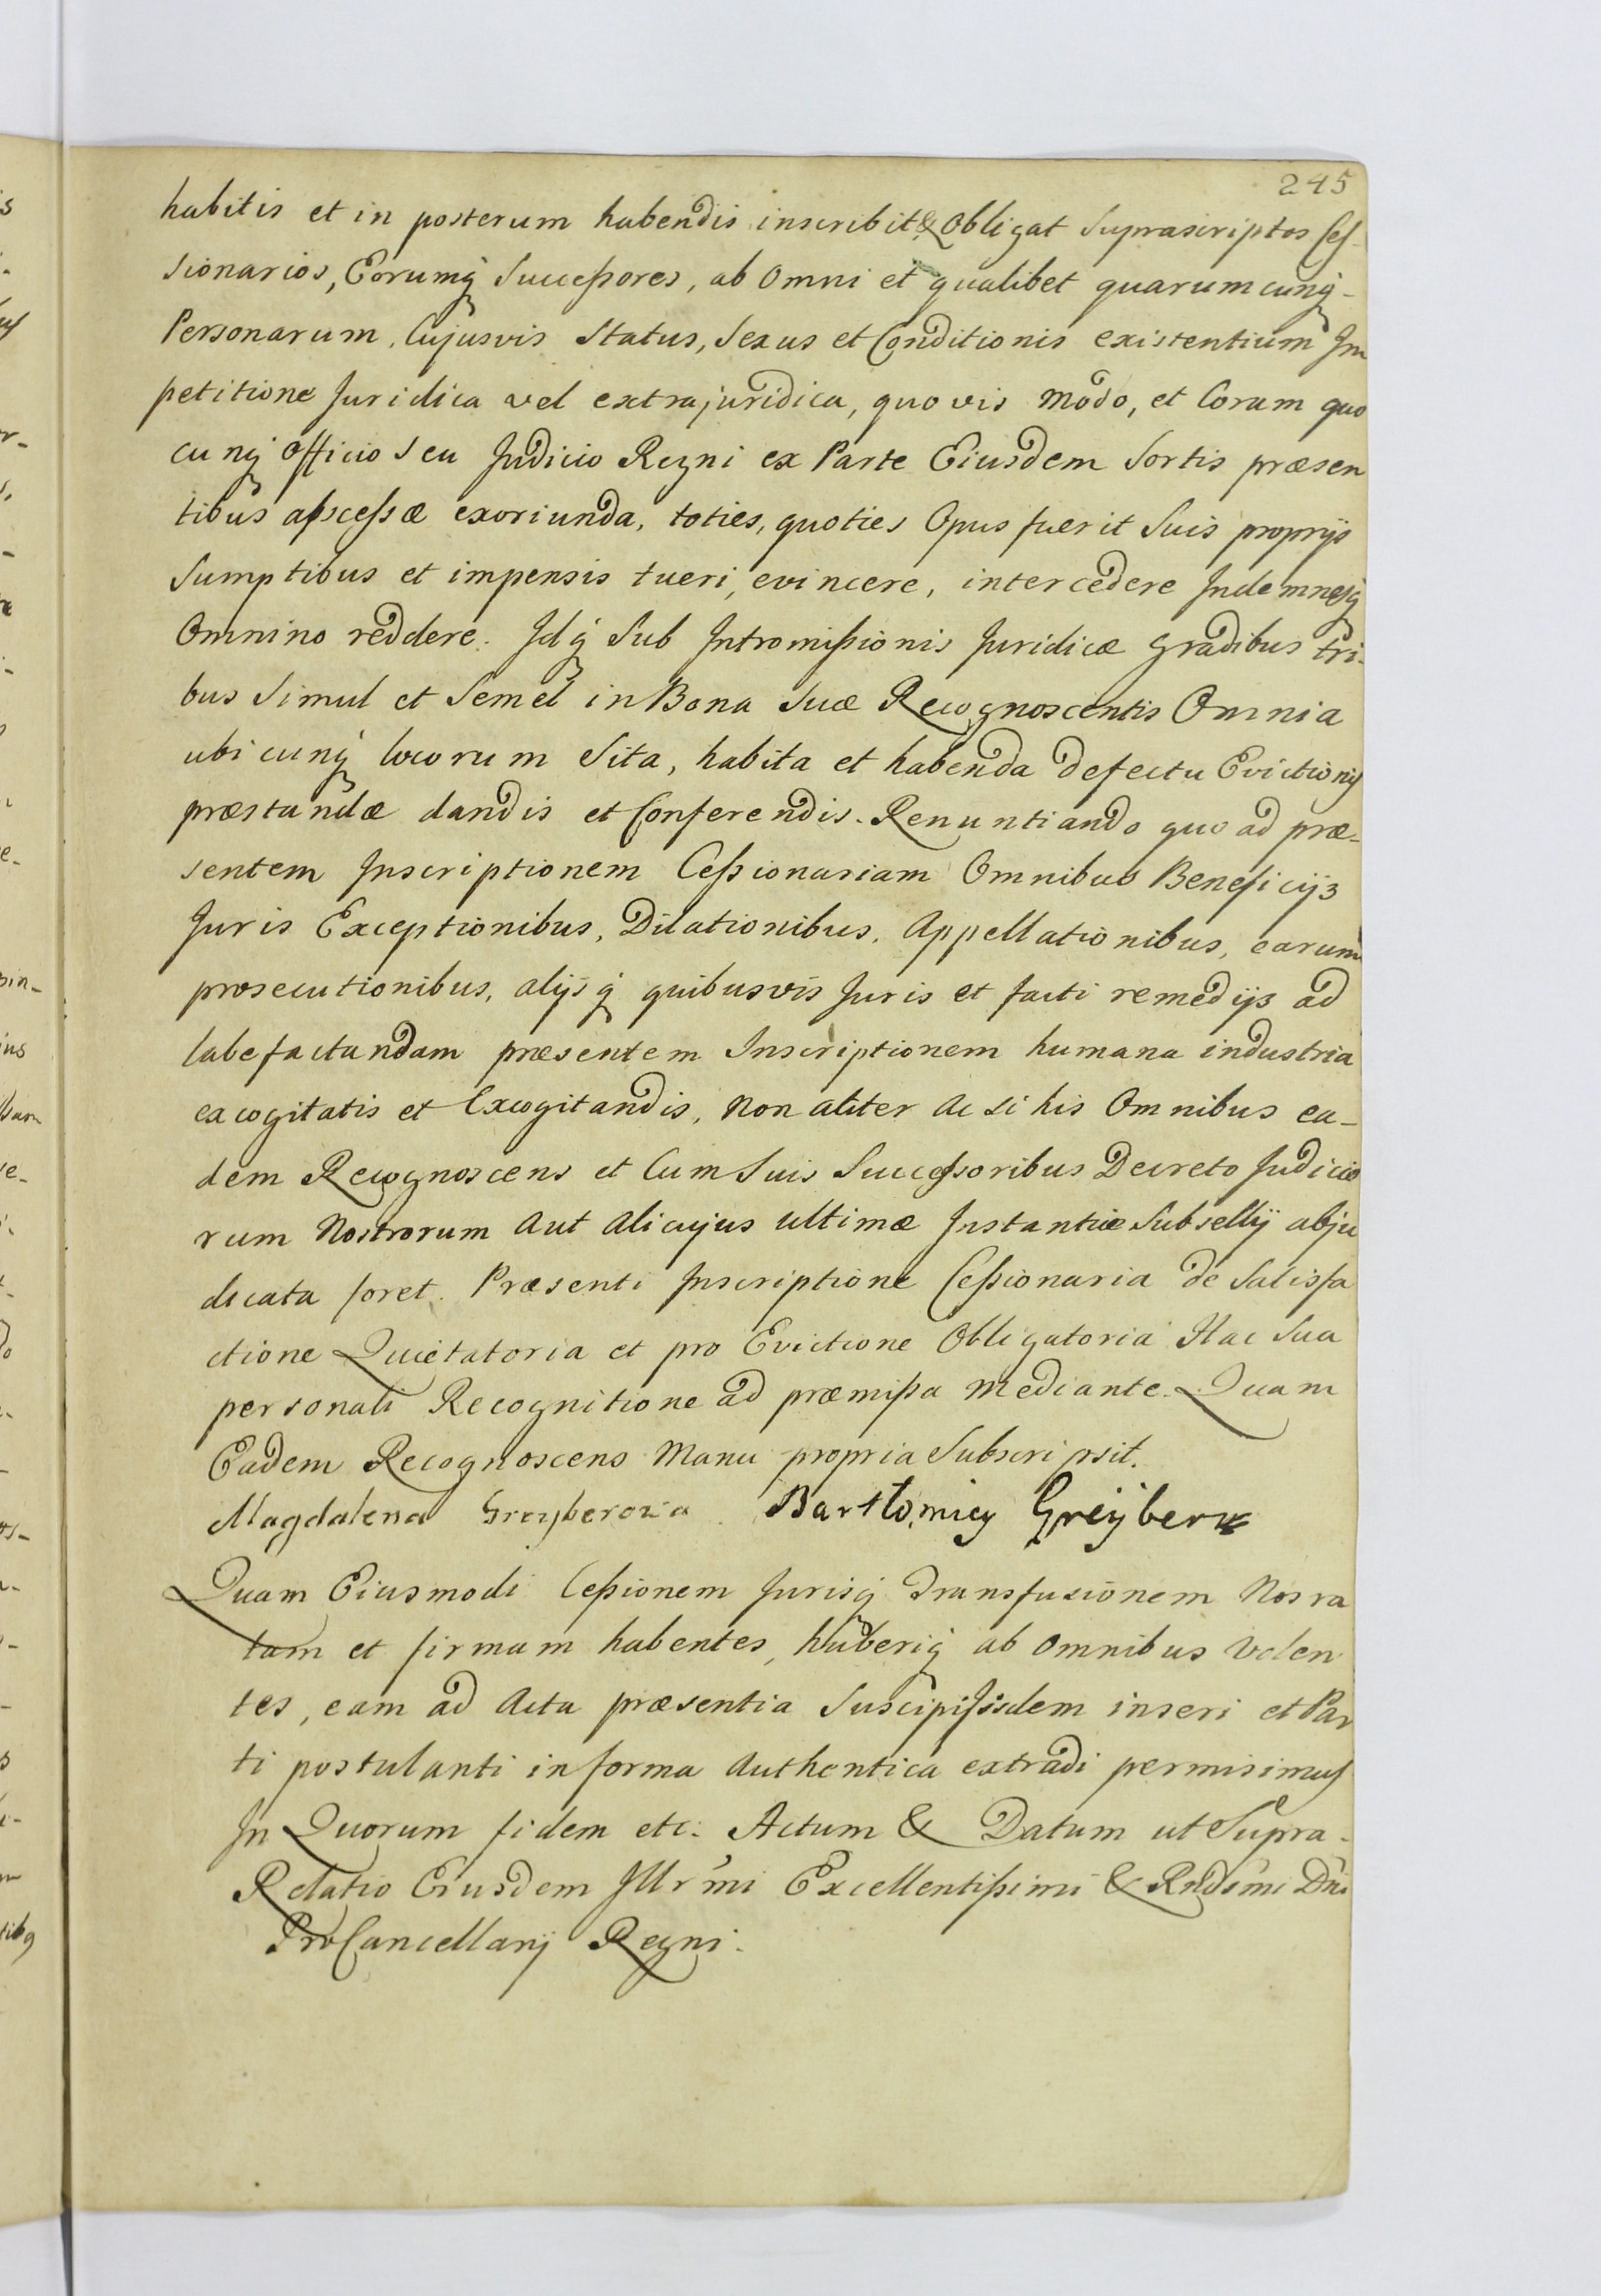 245
habitis et in posterum habendis inscribit & Obligat Suprascriptos Ces-
sionarios, Eorumq Successores, ab Omni et qualibet quarumcunq-
Personarum, Cujusvis Status, Sexus et Conditionis existentium Im
petitione Juridica vel extrajuridica, quovis Modo, et Coram quo
cunq Officio seu Judicio Regni ex Parte Eiusdem Sortis præsen
tibus abscessæ exoriunda, toties, quoties Opus fuerit Suis proprijs
Sumptibus et impensis tueri, evincere, intercedere Indemnesq
Omnino reddere. Idq Sub Intromissionis Juridicæ Gradibus tri-
bus Simul et Semel in Bona Suæ Recognoscentis Omnia
ubicunq locorum Sita, habita et habenda defectu Evictionis
præstandæ dandis et Conferendis. Renuntiando quo ad præ-
sentem Inscriptionem Cessionariam Omnibus Beneficijs
Juris Exceptionibus, Dilationibus, Appellationibus, earum
prosecutionibus, alijsq quibusvis Juris et facti remedijs ad
labefactandam præsentem Inscriptionem humana industria
excogitatis et Excogitandis, Non aliter ac si his Omnibus ea-
dem Recognoscens et Cum Suis Successoribus Decreto Judicio
rum Nostrorum Aut Alicujus Ultimæ Instantiæ Subsellij abju
dicata foret. Præsenti Inscriptione Cessionaria de Satisfa
ctione Quietatoria et pro Evictione Obligatoria Hac Sua
personali Recognitione ad præmissa Mediante. Quam
Eadem Recognoscens Manu propria Subscripsit.
Magdalena Greyberowa. Bartłomiey Greyber
Quam Eiusmodi Cessionem Jurisq Transfusionem Nos ra
tam et firmam habentes, haberiq ab Omnibus Volen
tes, eam ad Acta præsentia Suscipi Iisdem inseri et Par
ti postulanti in forma Authentica extradi permisimus
In Quorum fidem etc. Actum & Datum ut Supra.
Relatio Eiusdem Illrmi Excellentissimi & Rndsmi Dni
ProCancellarij Regni.